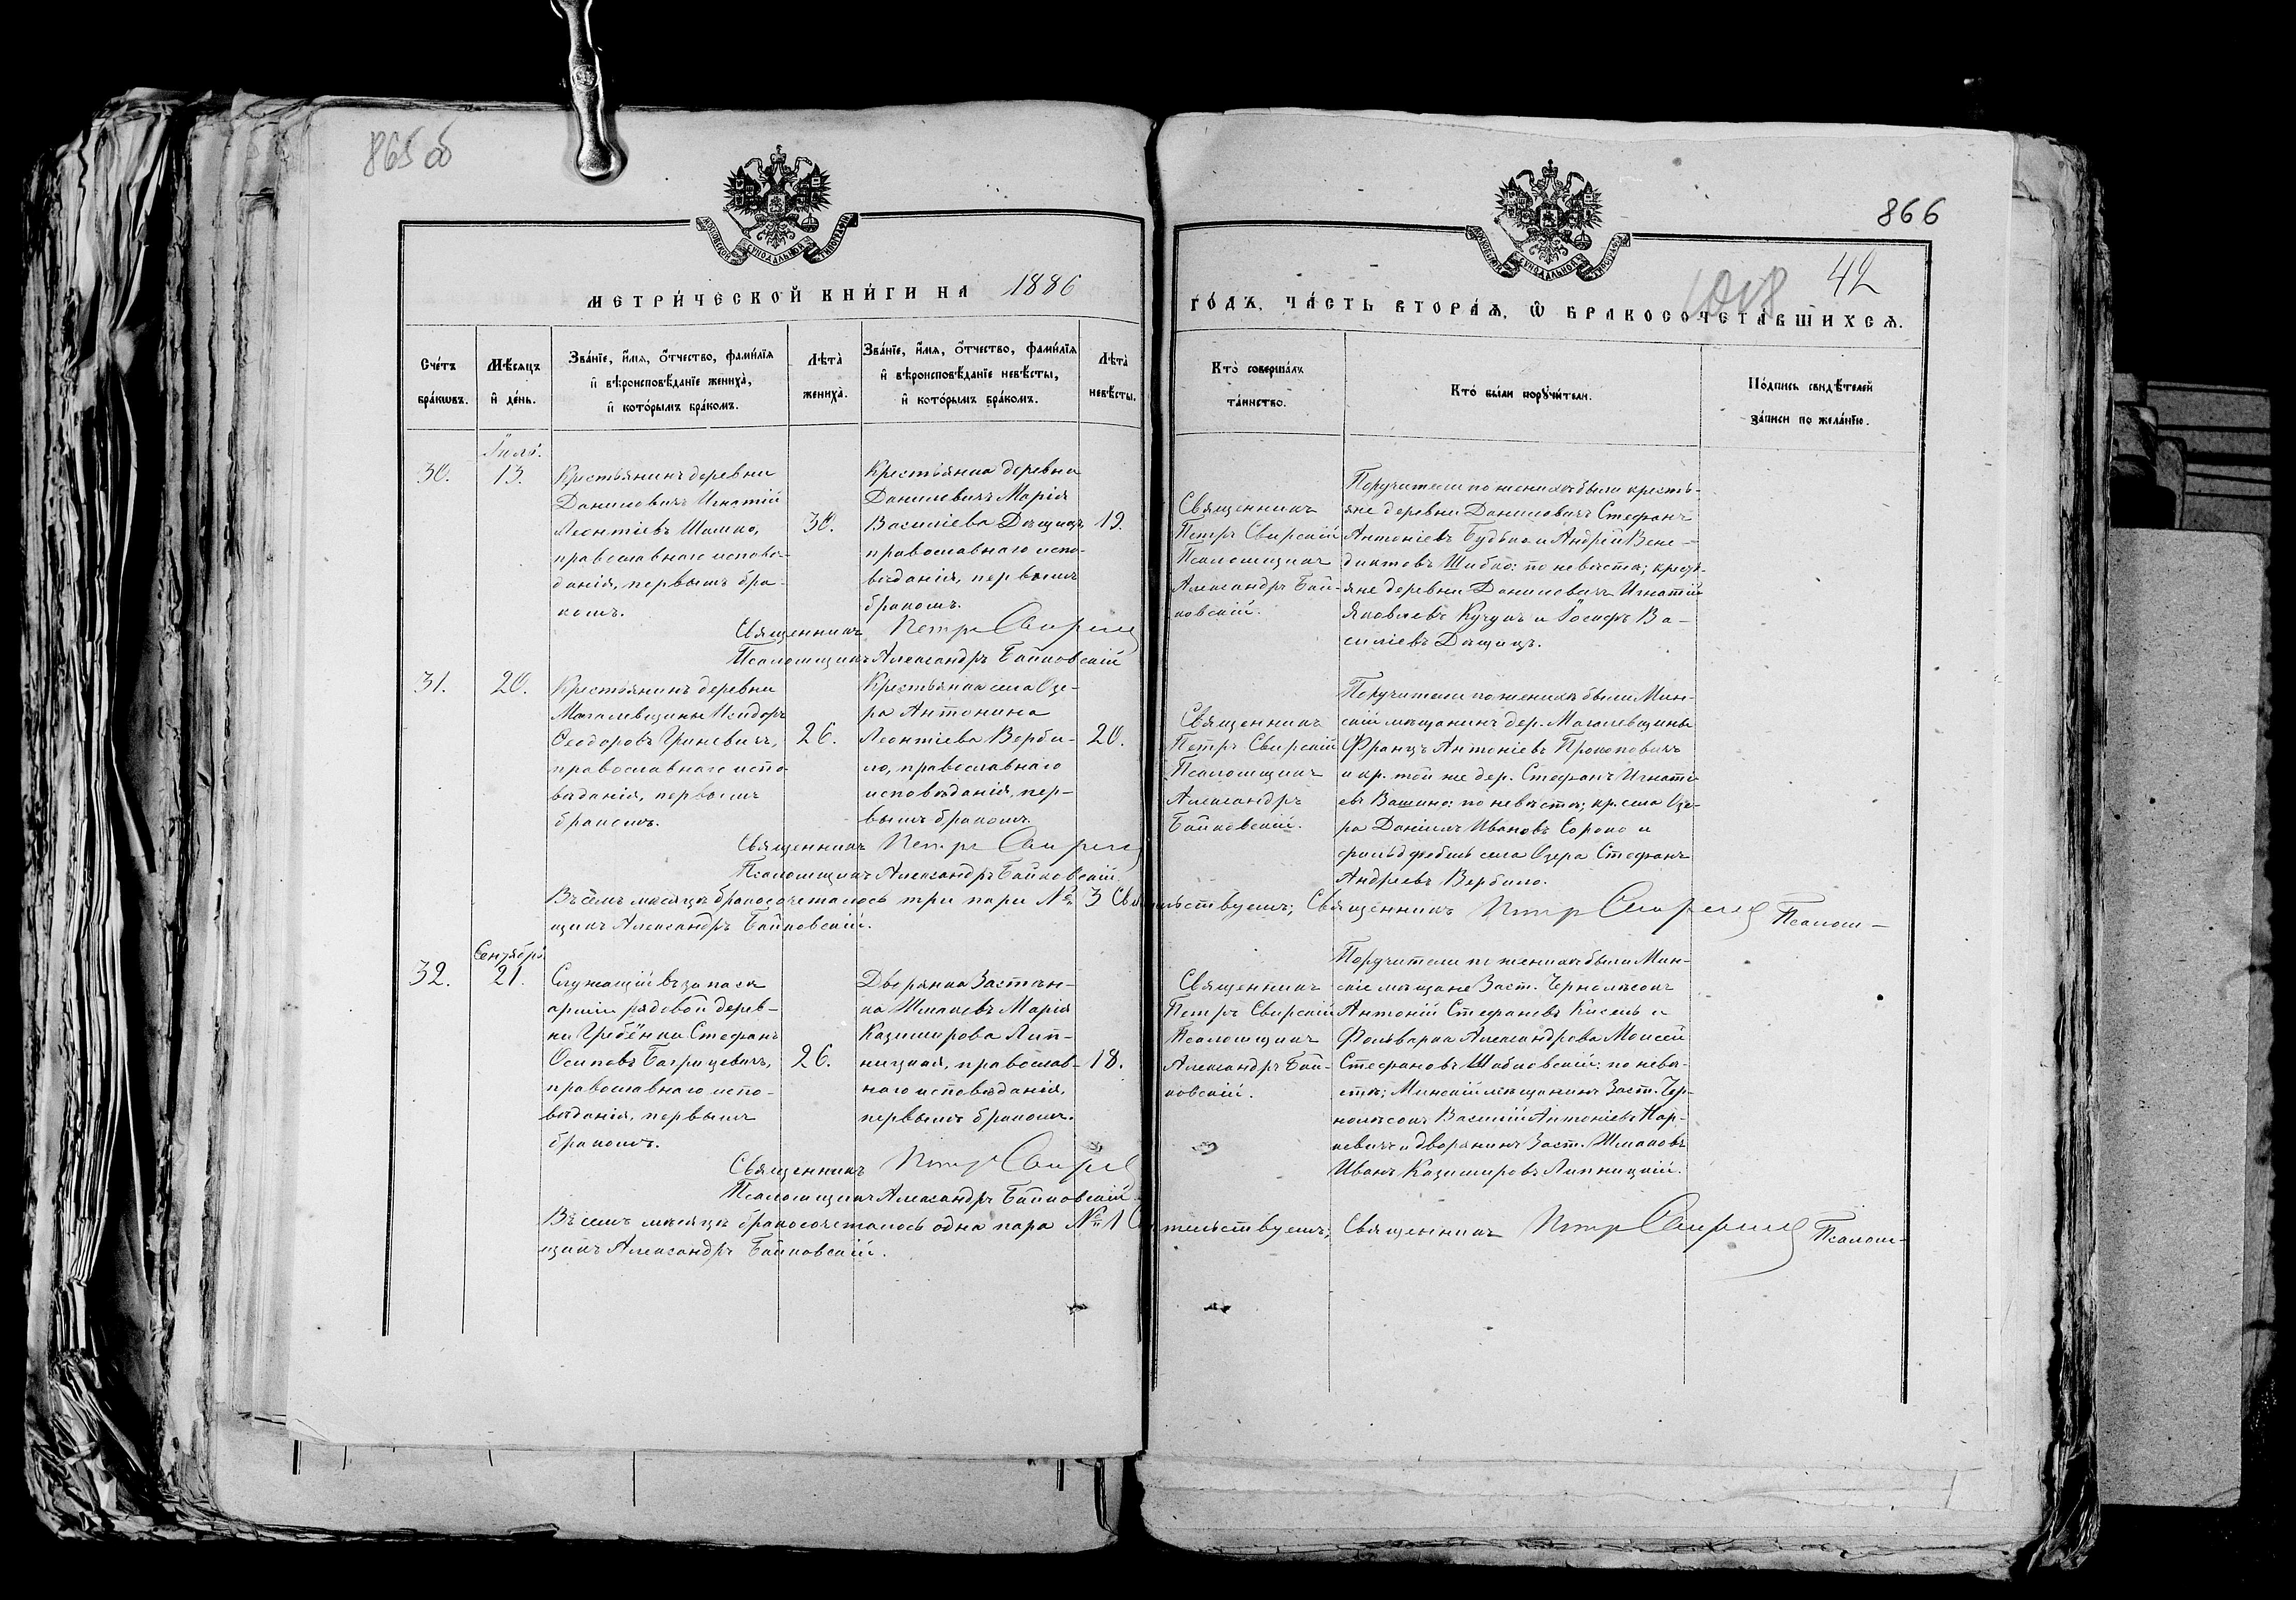 865 об
866
42
МОСКОВСКОЙ СѴНОДАЛЬНОЙ ТИПОГРАФІИ
МОСКОВСКОЙ СѴНОДАЛЬНОЙ ТИПОГРАФІИ
МЕТРИ́ЧЕСКОЙ КНИ́ГИ НА 1886
ГО́ДЪ, ЧА́СТЬ ВТОРА́Ѧ, Ѽ БРАКОСОЧЕТА́ВШИХСѦ.
Сче́тъ
бра́кѡвъ.
Мѣ́сяцъ
и де́нь.
Зва́нїе, и́мѧ, о́тчество, фами́лїѧ
и вѣроисповѣ́данїе жениха̀,
и кото́рымъ бра́комъ.
Лѣта̀
жениха̀.
Зва́нїе, и́мѧ, о́тчество, фами́лїѧ
и вѣроисповѣ́данїе невѣ́сты,
и кото́рымъ бра́комъ.
Лѣта̀
невѣ́сты.
Кто̀ соверша́лъ
та́инство.
Кто̀ бы́ли порꙋчи́тели.
По́дпись свидѣ́телей
за́писи по жела́нїю.
Іюль.
30.
13.
Крестьянинъ деревни
Даниловичъ Игнатій
Леонтіевъ Шашко,
православнаго испове-
данія, первымъ бра-
комъ.
30.
Крестьянка деревни
Данилевичъ Марія
Василіева Дащицъ,
православнаго испо-
вѣданія, первымъ
бракомъ.
19.
Священникъ
Петръ Свирскій
Псаломщикъ
Александръ Бай-
ковскій.
Поручители по женихѣ были кресть-
яне деревни Даниловичъ Стефанъ
Антоніевъ Будько и Андрей Вене-
диктовъ Шибко: по невѣстѣ; крест-
яне деревни Данилевичъ Игнатій
Яковлевъ Кучукъ и Іосифъ Ва-
силіевъ Дащицъ.
Священникъ Петръ Свирскій
Псаломщикъ Александръ Байковскій
31.
20.
Крестьянинъ деревни
Магалевщины Исидоръ
Ѳеодоровъ Гриневичъ,
православнаго испо-
вѣданія, первымъ
бракомъ.
26.
Крестьянка села Озе-
ра Антонина
Леонтіева Верби-
ло, православнаго
исповѣданія, пер-
вымъ бракомъ.
20.
Священникъ
Петръ Свирскій
Псаломщикъ
Александръ
Байковскій.
Поручители по женихѣ были Мин-
скій мѣщанинъ дер. Магалевщины
Францъ Антоніевъ Прокоповичъ
и кр. той же дер. Стефанъ Игнаті-
евъ Вашкло: по невѣстѣ; кр. села Озе-
ра Даніилъ Ивановъ Сороко и
фельдфебель села Озера Стефанъ
Андреевъ Вербило.
Священникъ Петръ Свирскій
Псаломщикъ Александръ Байковскій.
Въ семъ мѣсяцѣ бракосочеталось три пары № 3 Свидѣтельствуемъ; Священникъ Петръ Свирскій Псалом-
щикъ Александръ Байковскій.
Сентябрь
32.
21.
Служащій въ запасѣ
арміи рядовой дерев-
ни Гребёнки Стефанъ
Осиповъ Багрицевичъ,
православнаго испо-
вѣданія, первымъ
бракомъ.
26.
Дворянка Застѣн-
ка Шпаковъ Марія
Казимирова Лип-
ницкая, православ-
наго исповѣданія,
первымъ бракомъ.
18.
Священникъ
Петръ Свирскій
Псаломщикъ
Александръ Бай-
ковскій.
Поручители по женихѣ были Мин-
скіе мѣщане Заст. Чернолѣсокъ
Антоній Стефановъ Кисель и
Фольварка Александрова Моисей
Стефановъ Шабловскій: по невѣ-
стѣ; Минскій мѣщанинъ Заст. Чер-
нолѣсокъ Василій Антоніевъ Нар-
кевичъ и дворянинъ Заст. Шпаковъ
Иванъ Казимировъ Липницкій.
Священникъ Петръ Свирскій
Псаломщикъ Александръ Байковскій.
Въ семъ мѣсяцѣ бракосочеталось одна пара № 1 Свидѣтельствуемъ; Священникъ Петръ Свирскій Псалом-
щикъ Александръ Байковскій.